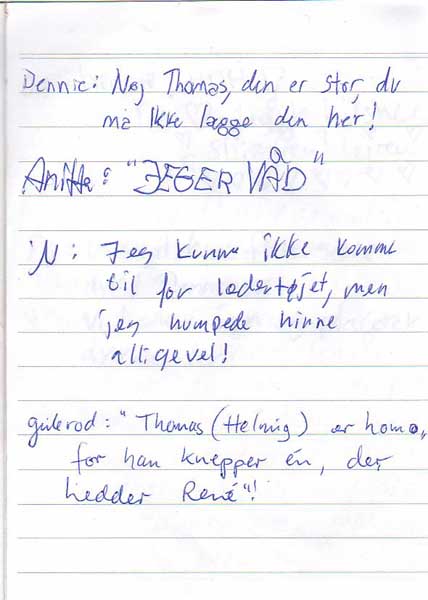 Dennie: Nej Thomas, den er stor, du
må ikke lægge den her!
Anitta: "JEG ER VÅD"
N: Jeg kunne ikke komme
til for lædertøjet, men
jeg humpede hinne
alligevel!
gulerod: "Thomas (Helmig) er homo,
for han knepper én, der
hedder René"!